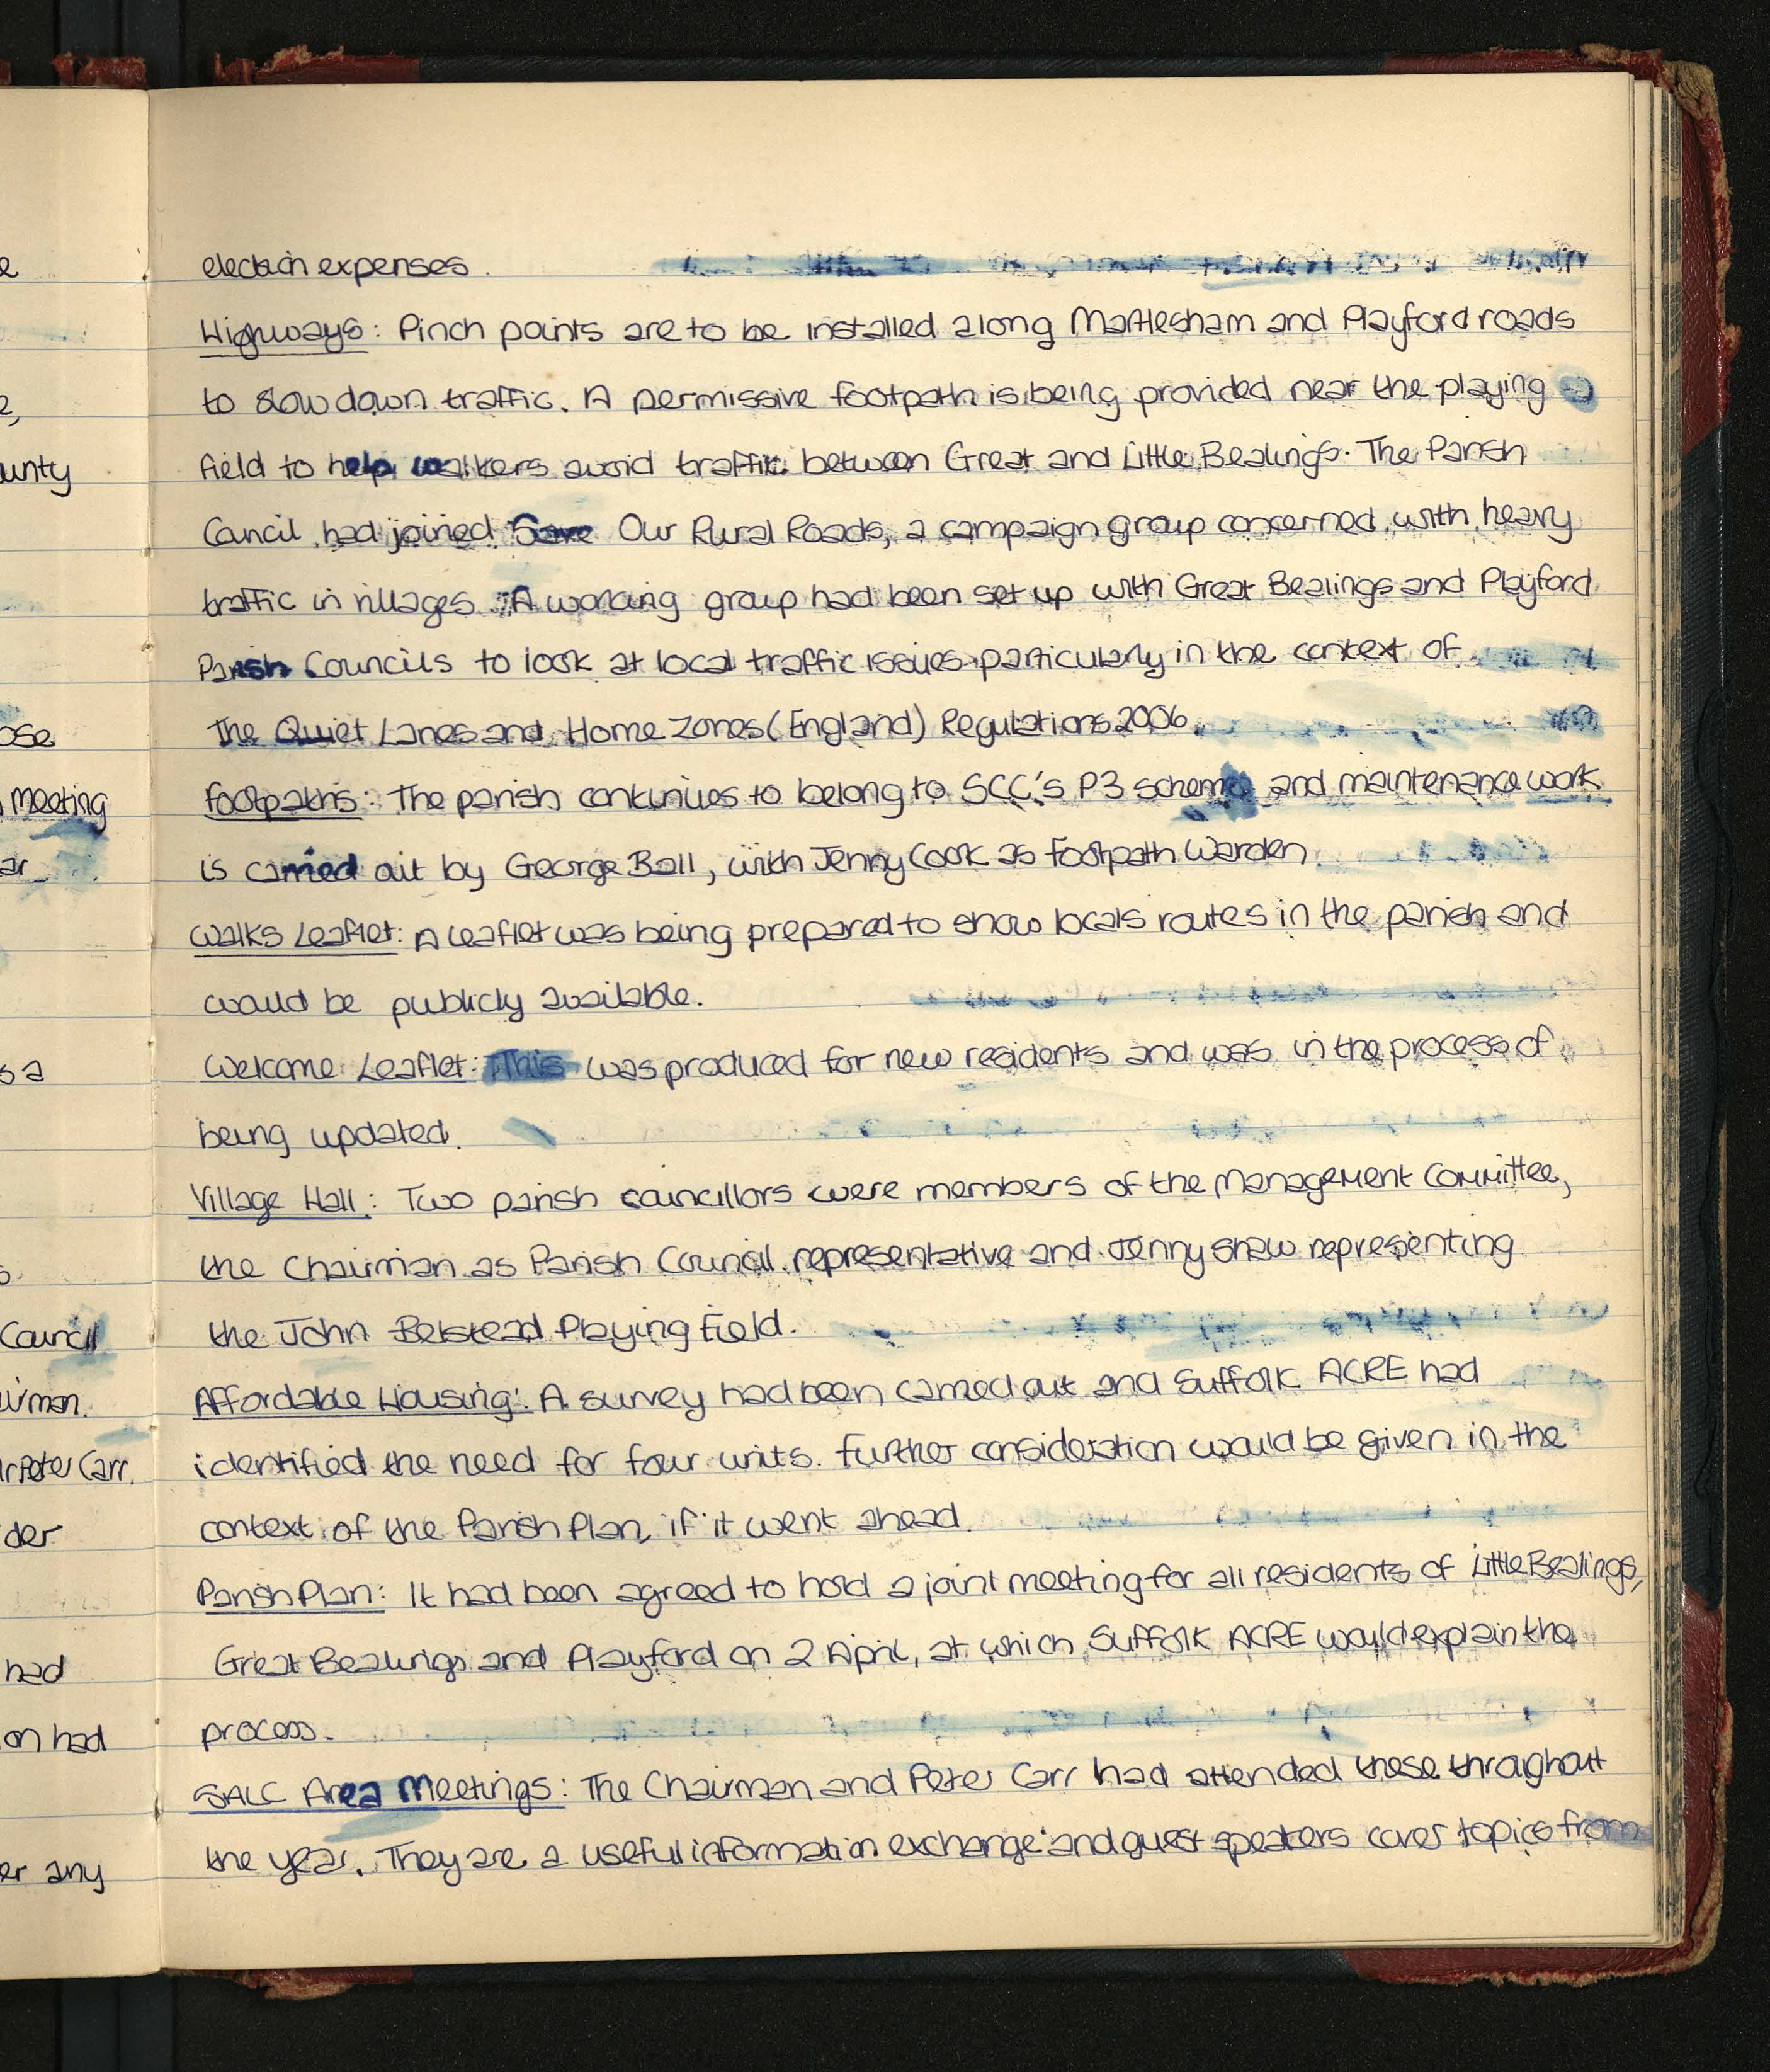 election expenses.
Highways: Pinch points are to be installed along Martlesham and Playford roads
to slow down traffic. A permissive footpath is being provided near the playing
field to help walkers avoid traffic between Great and Little Bealings. The Parish
Council had joined Save Our Rural Roads, a campaign group concerned with heavy
traffic in villages. A working group had been set up with Great Bealings and Playford
Parish Councils to look at local traffic issues particularly in the context of
The Quiet Lanes and Home Zones (England) Regulations 2006.
Footpaths: The parish continues to belong to SCC's P3 scheme and maintenance work
is carried out by George Ball, with Jenny Cook as Footpath Warden.
Walks Leaflet: A leaflet was being prepared to show locals routes in the parish and
would be publicly available.
Welcome Leaflet: This was produced for new residents and was in the process of
being updated.
Village Hall: Two parish councillors were members of the Management Committee,
the Chairman as Parish Council representative and Jenny Shaw representing
the John Belstead Playing Field.
Affordable Housing: A survey had been carried out and Suffolk ACRE had
identified the need for four units. Further consideration would be given in the
context of the Parish Plan, if it went ahead.
Parish Plan: It had been agreed to hold a joint meeting for all residents of Little Bealings,
Great Bealings and Playford on 2 April, at which Suffolk ACRE would explain the
process.
SALC Area Meetings: The Chairman and Peter Carr had attended these throughout
the year. They are a useful information exchange and guest speakers cover topics from
unty
ose
Meeting
ar
s a
Council
irman.
Peter Carr.
der
had
on had
er any